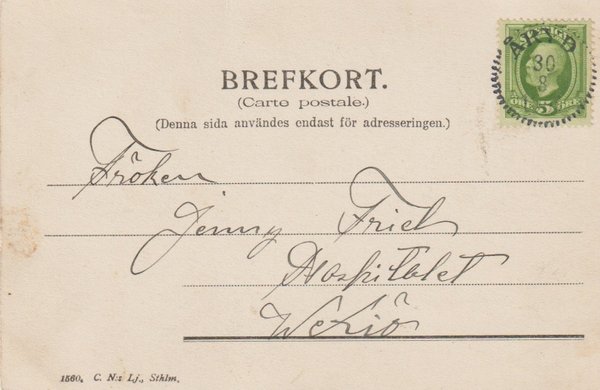 ÅRYD
30
8
ÖRE 5 ÖRE
BREFKORT.
(Carte postale.)
(Denna sida användes endast för adresseringen.)
Fröken
Jenny Frick
Hospitalet
Wexiö
1560. C. N:s Lj., Sthlm.